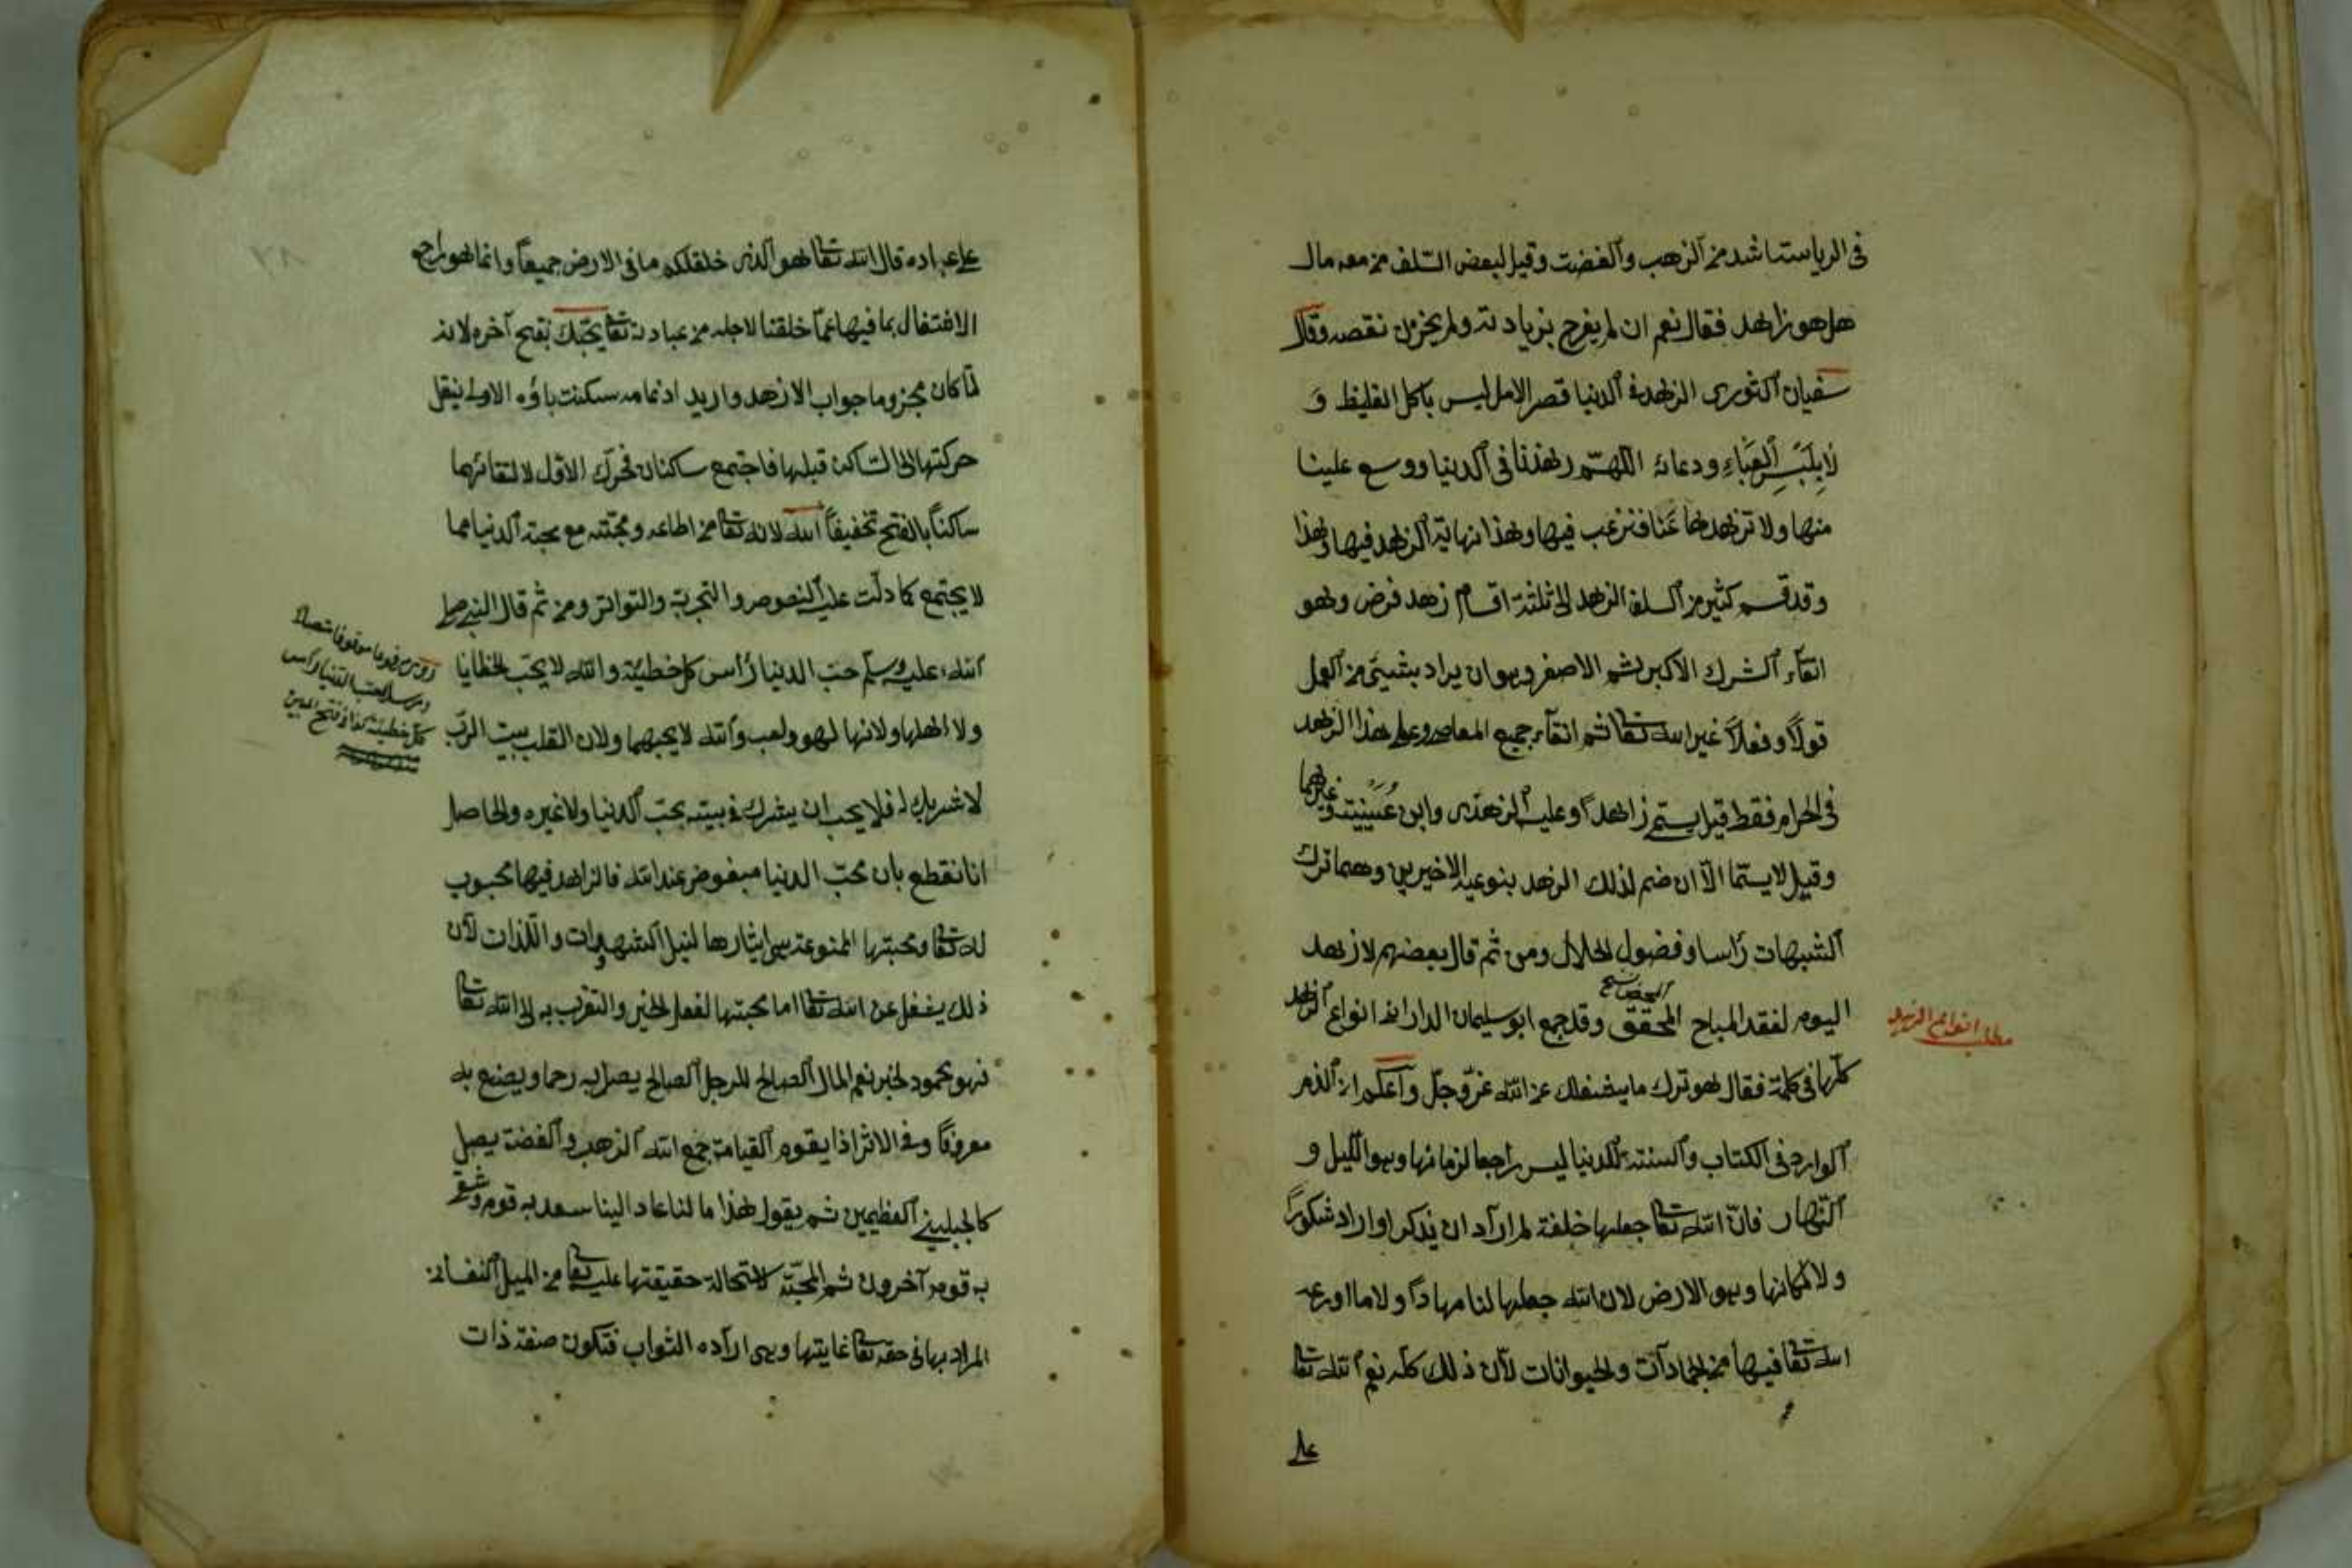 فى الرياستا شد من الذهب والفضت وقيل لبعض السّلف من معه مال
هل هو زاهد فقال نعم ان لم يفرح بزيادته ولم يحزن نقصه وقال
سفيان الثورى الزهد فى الدنيا قصر الامل ليس باكل الغليظ و
لا بِلَبْسِ الْعَبَاءِ ودعائه اللهمّ زهدنا فى الدنيا ووسع علينا
منها ولا تزهدها عَنا فنرغب فيها وهذا نهاية الزهد فيها وهذا
وقد قسم كثير من السلف الزهد الى ثلثة اقسام زهد فرض وهو
اتقآء الشرك الاكبر ثم الاصغر وهو ان يراد بشيئ من العمل
قولاً وفعلاً غير الله تعا ثم اتقآء جميع المعاصى وعلى هذا الزهد
فى الحرام فقط قيل يستمى زاهداً وعليه الزهدى وابن عُيَيْنِيَته وغيرهما
وقيل لا يستما الّا ان ضم لذلك الزهد بنوعيه الاخيرين وهما ترك
الشبهات رأسا وفضول الحلال ومن ثم قال بعضهم لا زهد
اليوم لفقد المباح المحقق وقد جمع ابو سليمان الدارانى انواع الزهد
كلّها فى كلمة فقال هو ترك ما يشغلك عن الله عزّوجلّ واعلم ان الذم
الوارد فى الكتاب والسنته للدنيا ليس راجعا لزمانها وهو الليل و
النهار فانّ الله تعا جعلها خلفة لمن ارآد ان يذكر او اراد شكورًا
ولا لمكانها وهو الارض لان الله جعلها لنا مهاداً ولا ما اودعه
الله تعا فيها من الجمادآت والحيوانات لآن ذلك كله نعم الله تعا
على
مطلب انواع الزهد
على عباده قال الله تعا هو الذى خلق لكم ما فى الارض جميعاً وانما هو راجع
الاشتغال بما فيها عمّا خلقنا لاجله من عبادته تعا يحبّك بفتح آخره لانه
لمّا كان مجزوما جواب الازهد واريد ادغامه سكنت باؤه الاولى بنقل
حركتها الى السّاكن قبلها فاجتمع ساكنان فحرّك الاوّل لالتقائهما
ساكناً بالفتح تخفيفاً الله لانه تعا من اطاعه ومحبّته مع محبة الدنيا مما
لا يجتمع كما دلّت عليه النصوص والتجربة والتواتر ومن ثم قال النبى صلى
الله عليه وسلم حبّ الدنيا رأس كل خطيئة والله لا يحبّ الخطايا
ولا اهلها ولانها لهو ولعب والله لا يحبهما ولان القلب بيت الربّ
لا شريك له فلا يحب ان يشرك فى بيته بحبّ الدنيا ولا غيره والحاصل
انا نقطع بان محبّ الدنيا مبغوض عند الله فالزاهد فيها محبوب
له تعا ومحبتها الممنوعة هى ايثارها لنيل الشهوات واللذات لآن
ذلك يشغل عن الله تعا اما محبتها لفعل الخير والتقرب به الى الله تعا
فهو محمود لخبر نعم المال الصالح للرجل الصالح يصل به رحما ويصنع به
معروفاً وفى الاثر اذا يقوم القيامة جمع الله الذهب والفضة يصل
كالجبلين العظيمين ثم يقول هذا ما لنا عاد الينا سعد به قوم وشقى
به قوم آخرون ثم المحبّة لاستحالة حقيقتها عليه تعا من الميل النفسانى
المراد بها فى حقه تعا غايتها وهى ارآده الثواب فتكون صفة ذات
كل خطيئة